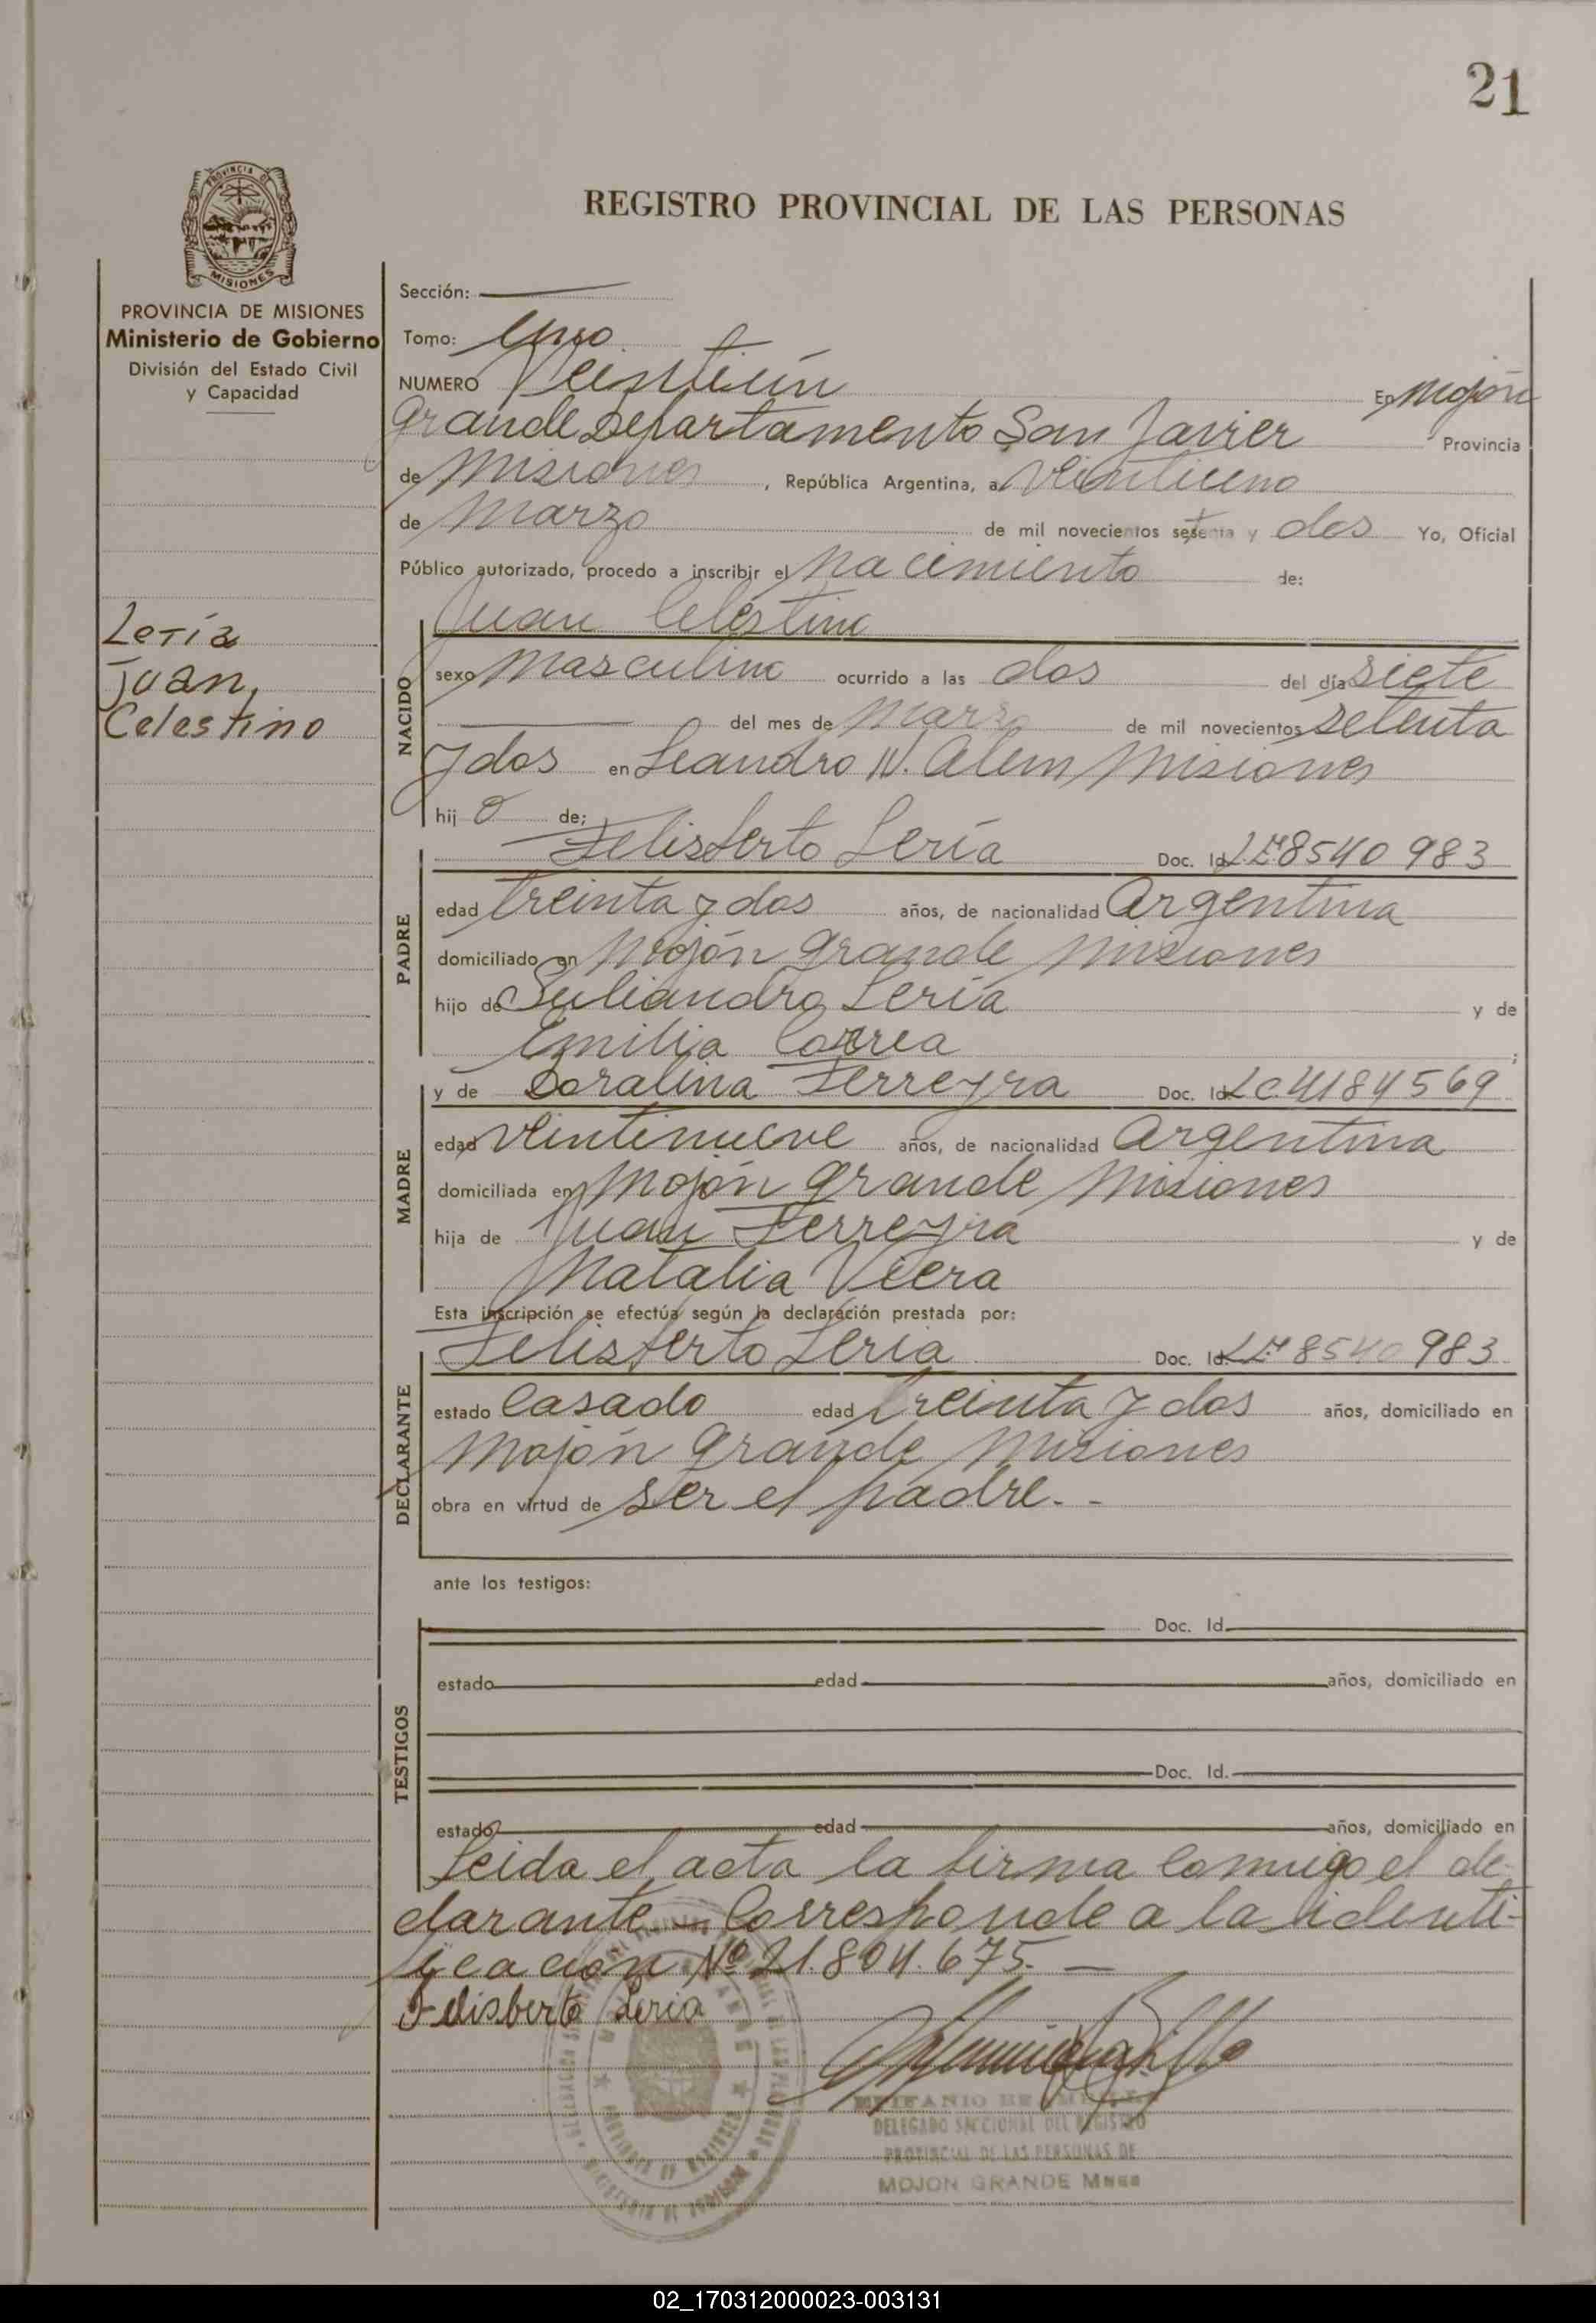 21
PROVINCIA DE
MISIONES
REGISTRO PROVINCIAL DE LAS PERSONAS
PROVINCIA DE MISIONES
Ministerio de Gobierno
División del Estado Civil
y Capacidad
Lería
Juan,
Celestino
Sección:
Tomo: Uno
NUMERO Veintiún En Mojón
Grande Departamento San Javier Provincia
de Misiones, República Argentina, a veintiuno
de Marzo de mil novecientos setenta y dos Yo, Oficial
Público autorizado, procedo a inscribir el nacimiento de:
Juan Celestino
NACIDO
sexo Masculino ocurrido a las dos del día siete
del mes de Marzo de mil novecientos setenta
y dos en Leandro N. Alem Misiones
hijo de;
Felisberto Lería Doc. Id. L.M 8540983
PADRE
edad treinta y dos años, de nacionalidad Argentina
domiciliado en Mojón Grande Misiones
hijo de Juliandro Lería y de
Emilia Correa;
y de Doralina Ferreyra Doc. Id. L.C. 4184569
MADRE
edad veintinueve años, de nacionalidad Argentina
domiciliada en Mojón Grande Misiones
hija de Juan Ferreyra y de
Natalia Viera
Esta inscripción se efectúa según la declaración prestada por:
Felisberto Lería Doc. Id. L.M 8540983
DECLARANTE
estado Casado edad treinta y dos años, domiciliado en
Mojón Grande Misiones
obra en virtud de ser el padre. -
ante los testigos:
TESTIGOS
Doc. Id.
estado edad años, domiciliado en
Doc. Id.
estado edad años, domiciliado en
Leida el acta la firma conmigo el de-
clarante — Corresponde a la identi-
ficación Nº 21.804.675. —
Felisberto Leria
DELEGADO SECCIONAL DEL REGISTRO
PROVINCIAL DE LAS PERSONAS DE
MOJON GRANDE Mnes
02_170312000023-003131